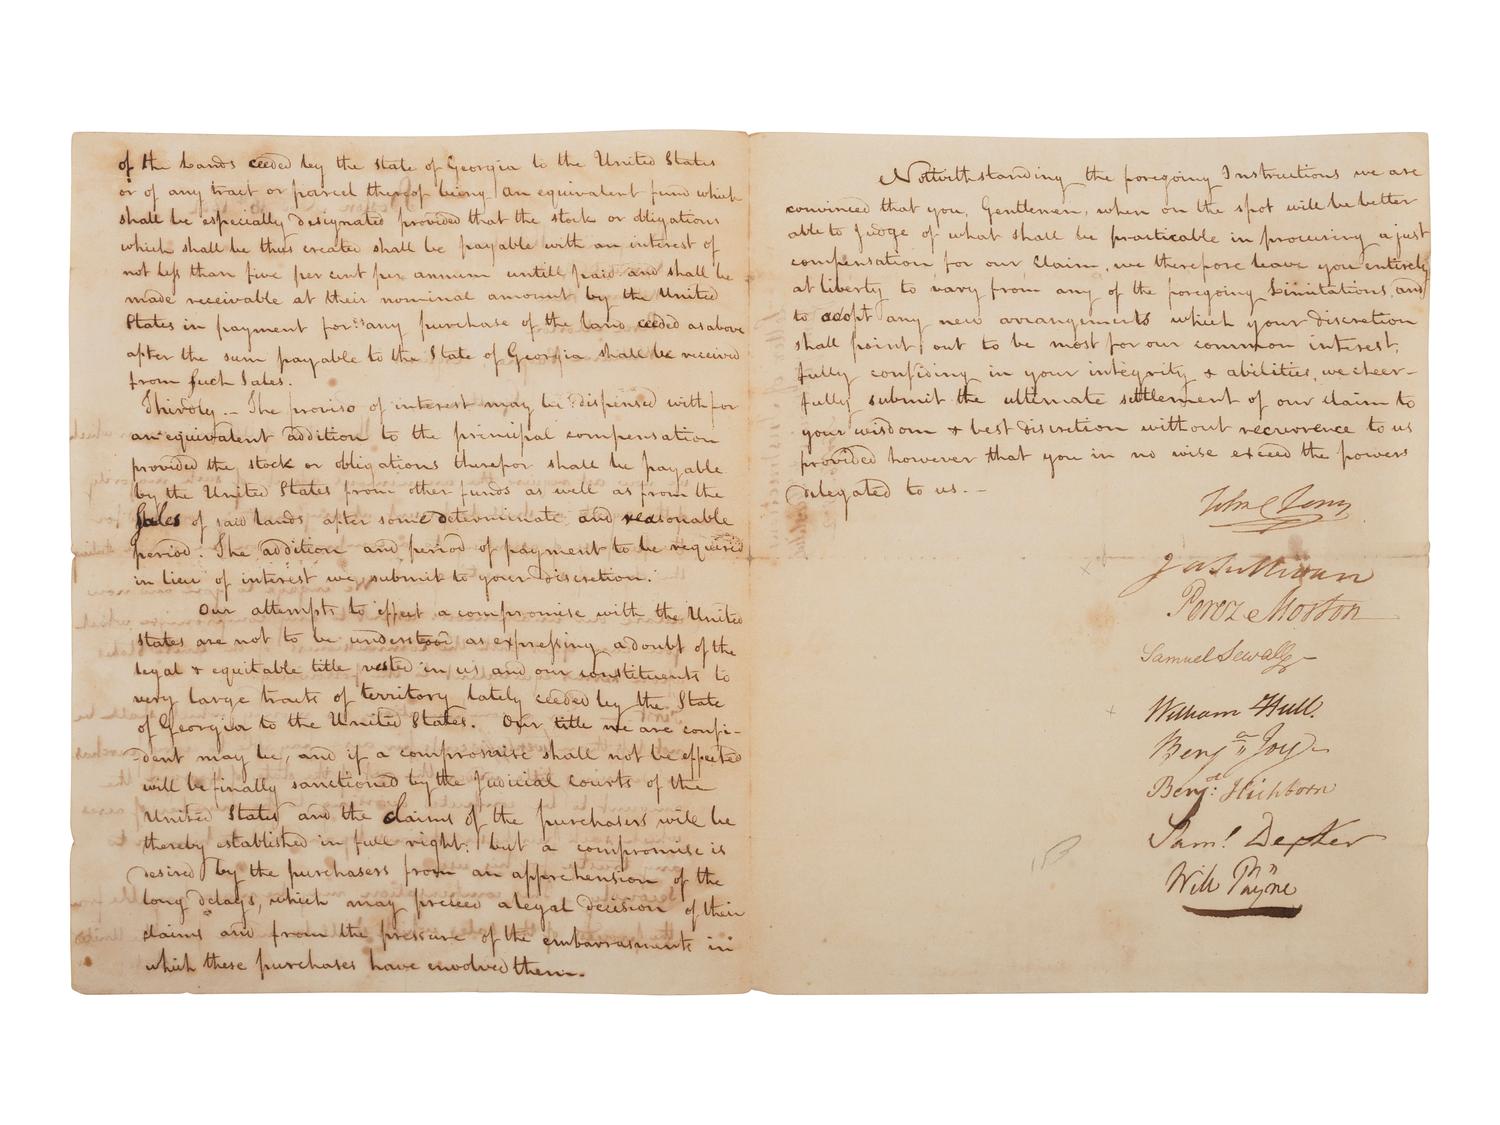 of the Lands ceeded by the state of Georgia to the United States
or of any tract or parcel thereof being an equivalent fund which
shall be especially designated provided that the stock or obligations
which shall be thus created shall be payable with an interest of
not less than five per cent per annum untill paid and shall be
made receivable at their nominal amount by the United
States in payment for any purchase of the land ceeded as above
after the sum payable to the State of Georgia shall be received
from such Sales.
Thirdly. — The proviso of interest may be dispensed with for
an equivalent addition to the principal compensation
provided the stock or obligations therefor shall be payable
by the United States from other funds as well as from the
Sales of said lands after some determinate and reasonable
period. The addition and period of payment to be required
in lieu of interest we submit to your discretion.
Our attempts to effect a compromise with the United
States are not to be understood as expressing a doubt of the
legal & equitable title vested in us and our constituents to
very large tracts of territory lately ceeded by the State
of Georgia to the United States. Our title we are confi-
dent may be, and if a compromise shall not be effected
will be finally sanctioned by the Judicial courts of the
United States and the claims of the purchasers will be
thereby established in full right: but a compromise is
desired by the purchasers from an apprehension of the
long delays, which may preceed a legal decision of their
claims and from the pressure of the embarrasments in
which these purchases have envolved them.
Nottwithstanding the foregoing Instructions we are
convinced that you, Gentlemen, when on the spot will be better
able to judge of what shall be practicable in procuring a just
compensation for our Claim, we therefore leave you entirely
at liberty to vary from any of the foregoing Limitations, and
to adopt any new arrangements which your discretion
shall point out to be most for our common interest;
fully confiding in your integrity & abilities, we cheer-
fully submit the ultimate settlement of our claim to
your wisdom & best discretion without recurrence to us
provided however that you in no wise exceed the powers
delegated to us. —
John C Jones
Ja Sullivan
Perez Morton
Samuel Sewall
William Hull.
Benja Joy
Benja: Hichborn
Saml Dexter
Will Payne